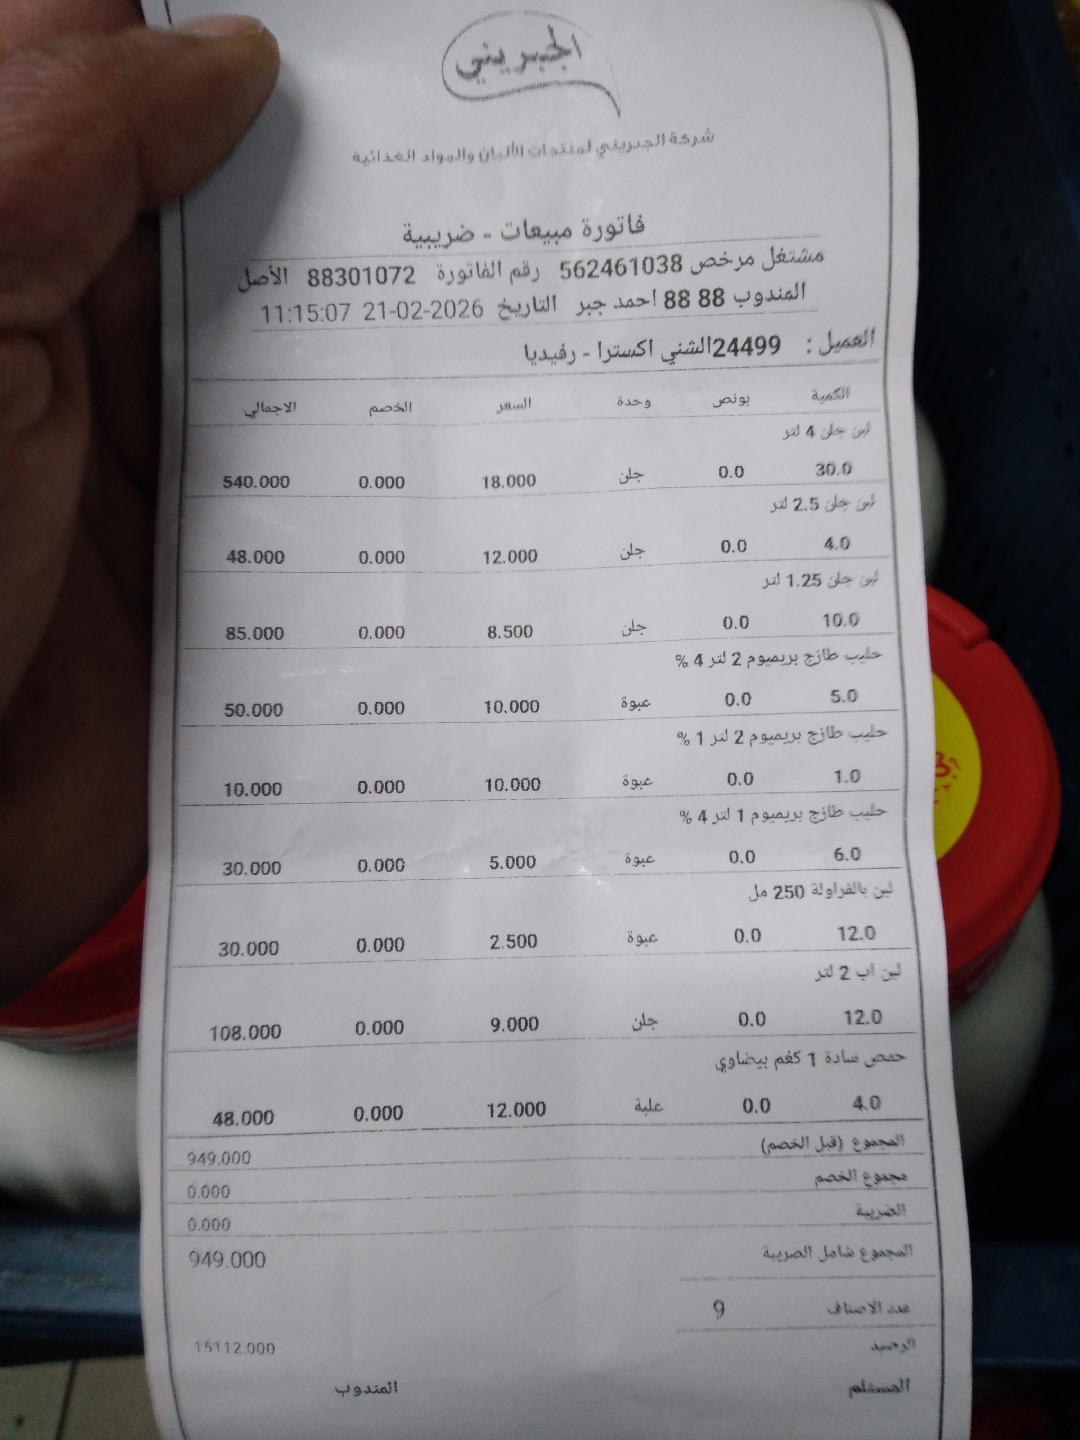 الجبريني
شركة الجبريني لمنتجات الألبان والمواد الغذائية
فاتورة مبيعات - ضريبية
مشتغل مرخص 562461038 رقم الفاتورة 88301072 الأصل
المندوب 88 88 احمد جبر التاريخ 21-02-2026 11:15:07
العميل : 24499الشني اكسترا - رفيديا
الكمية بونص وحدة السعر الخصم الاجمالي
لبن جلن 4 لتر
30.0 0.0 جلن 18.000 0.000 540.000
لبن جلن 2.5 لتر
4.0 0.0 جلن 12.000 0.000 48.000
لبن جلن 1.25 لتر
10.0 0.0 جلن 8.500 0.000 85.000
حليب طازج بريميوم 2 لتر 4 %
5.0 0.0 عبوة 10.000 0.000 50.000
حليب طازج بريميوم 2 لتر 1 %
1.0 0.0 عبوة 10.000 0.000 10.000
حليب طازج بريميوم 1 لتر 4 %
6.0 0.0 عبوة 5.000 0.000 30.000
لبن بالفراولة 250 مل
12.0 0.0 عبوة 2.500 0.000 30.000
لبن اب 2 لتر
12.0 0.0 جلن 9.000 0.000 108.000
حمص سادة 1 كغم بيضاوي
4.0 0.0 علبة 12.000 0.000 48.000
المجموع (قبل الخصم) 949.000
مجموع الخصم 0.000
الضريبة 0.000
المجموع شامل الضريبة 949.000
عدد الاصناف 9
الرصيد 15112.000
المستلم المندوب